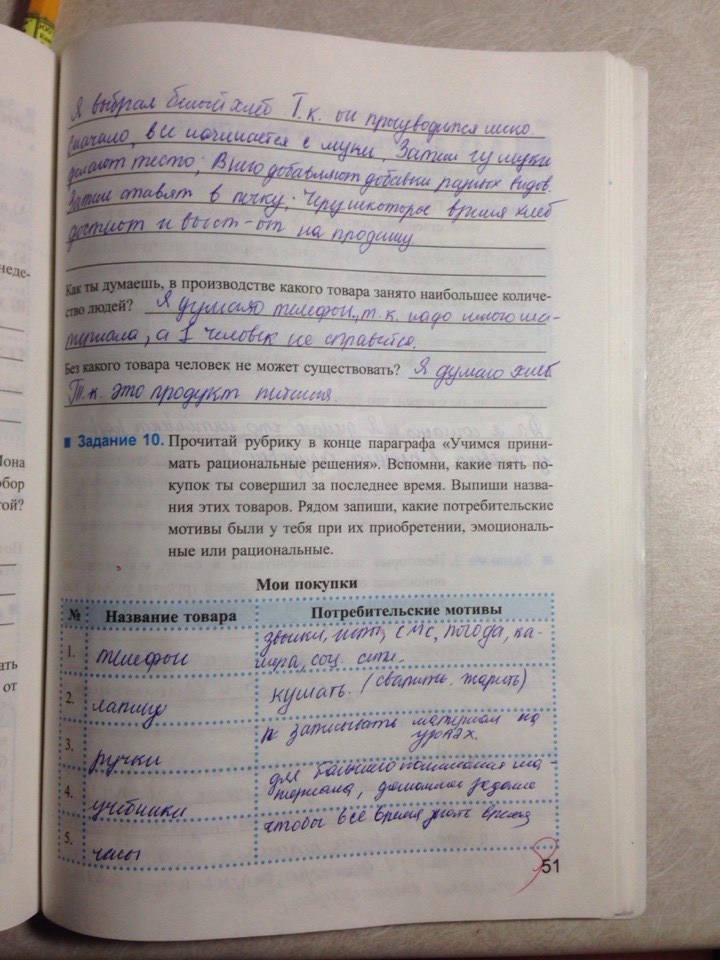 Я выбрал белый хлеб Т.к. он производится легко.
Сначало, все начинается с муки. Затем из муки
делают тесто; В него добавляют добавки разных видов.
Затем ставят в печку; Через некоторое время хлеб
достают и выст-ют на продажу
неде-
Как ты думаешь, в производстве какого товара занято наибольшее количе-
ство людей? Я думаю телефон, т.к. надо много ма-
териала, а 1 человек не справится.
Без какого товара человек не может существовать? Я думаю хлеб
Т.к. это продукт питания
■ Задание 10. Прочитай рубрику в конце параграфа «Учимся прини-
мать рациональные решения». Вспомни, какие пять по-
купок ты совершил за последнее время. Выпиши назва-
ния этих товаров. Рядом запиши, какие потребительские
мотивы были у тебя при их приобретении, эмоциональ-
ные или рациональные.
Мона
обор
той?
ать
от
Мои покупки
№ Название товара Потребительские мотивы
1. телефон звонки, инт, СМС, погода, ка-
мера, соц. сети.
2. лапшу кушать. (сварить. жарить)
3. ручки записывать материал на
уроках.
4. учебники для большего понимания ма-
териала, домашнее задание
5. часы чтобы всё время знать время
51